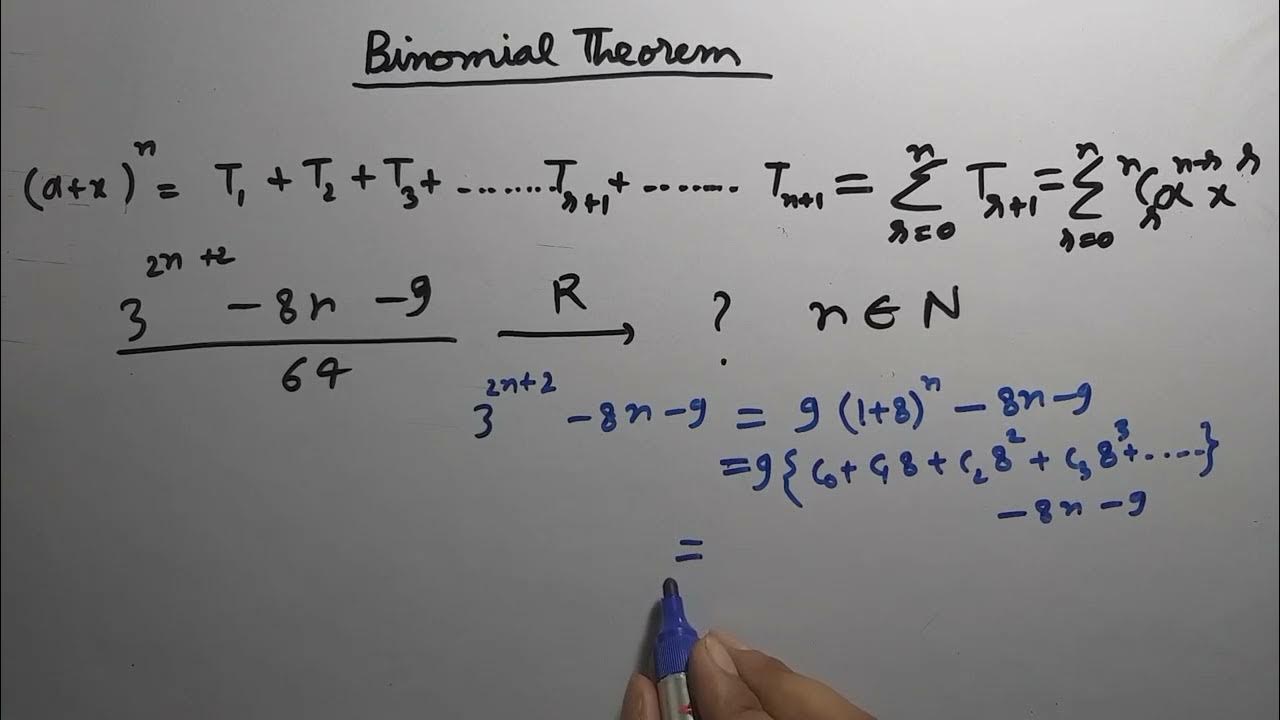 Binomial Theorem
(a+x)^n = T₁ + T₂ + T₃ + ....... T_{r+1} + ....... T_{n+1} = ∑_{r=0}^{n} T_{r+1} = ∑_{r=0}^{n} ^nC_r a^{n-r} x^r
\frac{3^{2n+2} - 8n - 9}{64} \xrightarrow{R} ? n ∈ N
3^{2n+2} - 8n - 9 = 9 (1+8)^n - 8n - 9
= 9 { C₀ + C₁8 + C₂8² + C₃8³ + ..... }
- 8n - 9
=